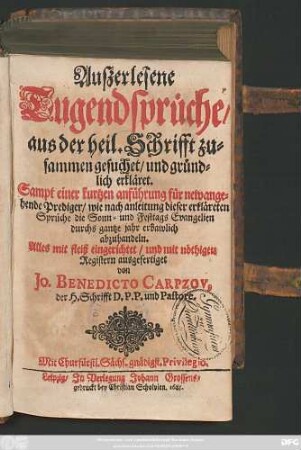 Außerlesene
Tugendsprüche/
aus der heil. Schrifft zu-
sammen gesuchet/ und gründ-
lich erkläret.
Sampt einer kurtzen anführung für newange-
hende Prediger/ wie nach anleitung dieser erklärten
Sprüche die Sonn- und Festags Evangelien
durchs gantze jahr erbawlich
abzuhandeln.
Alles mit fleiß eingerichtet/ und mit nöthigen
Registern ausgefertiget
von
JO. BENEDICTO CARPZOV,
der H. Schrifft D. P. P. und Pastore.
Mit Churfürstl. Sächs. gnädigst. Privilegio.
Leipzig/ In Verlegung Johann Grossens/
gedruckt bey Christian Scholvien.